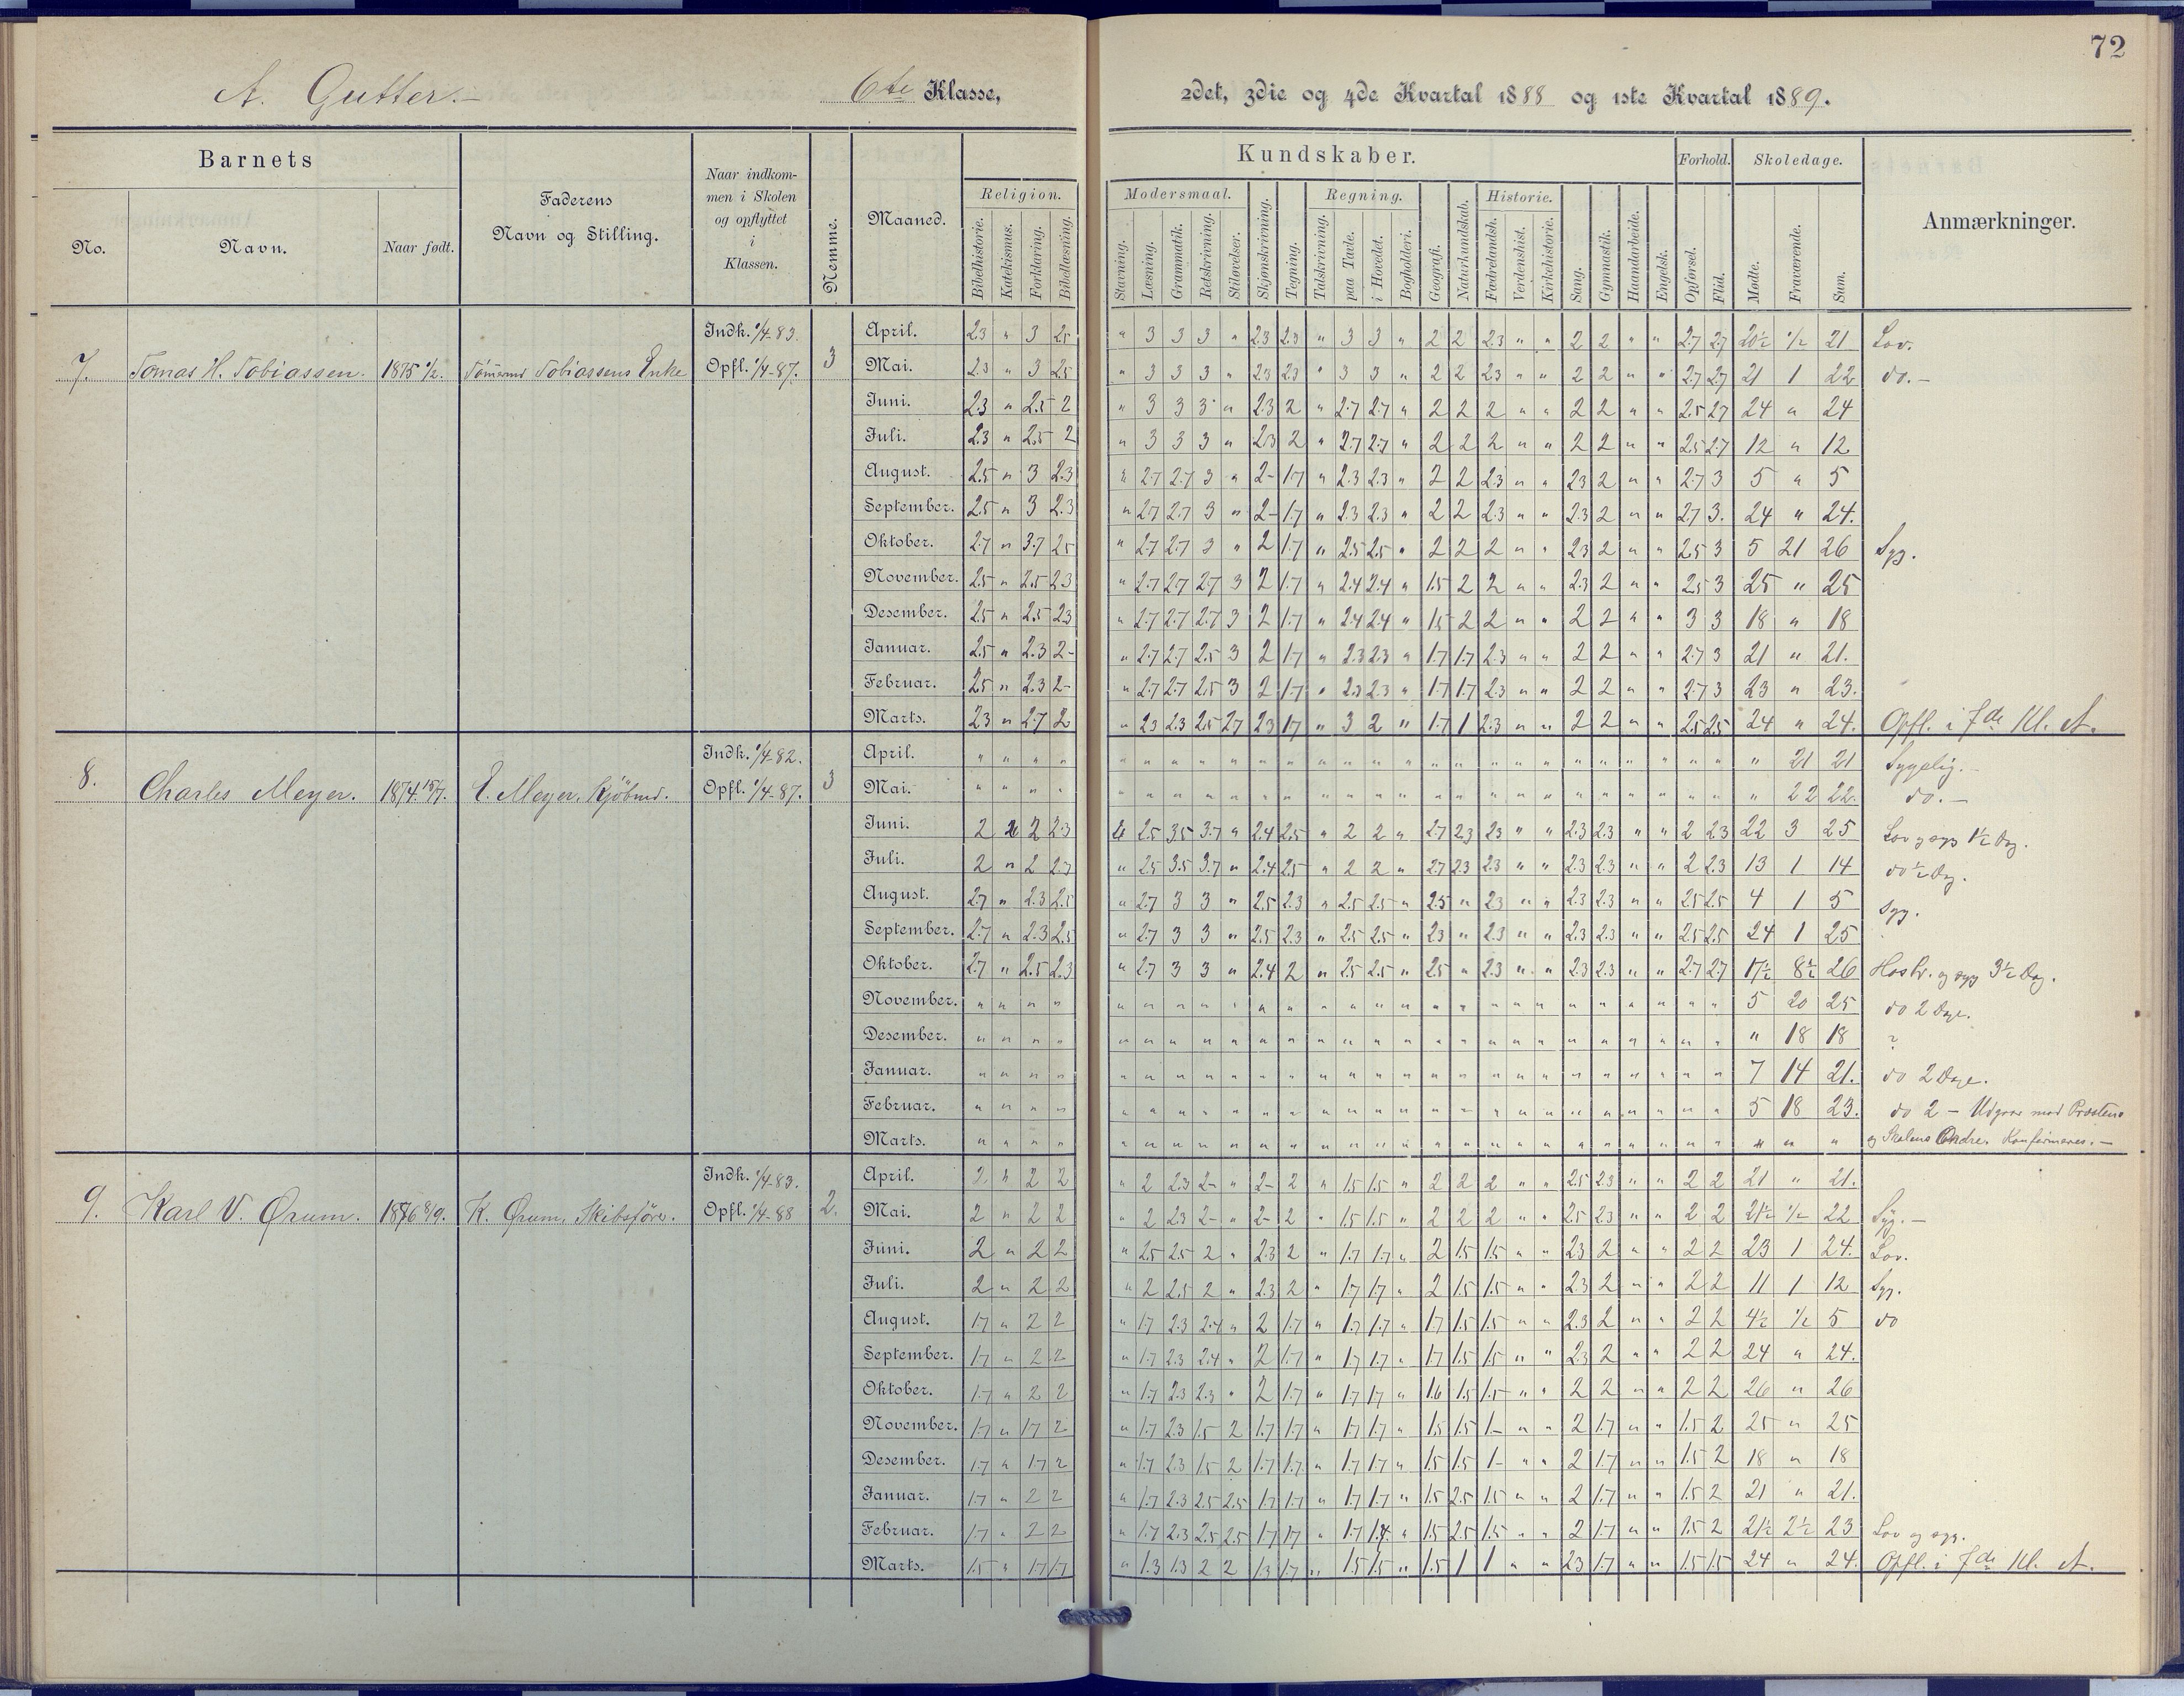 72
A. Gutter.— 6te Klasse, 2det, 3die og 4de Kvartal 1888 og 1ste Kvartal 1889.
Barnets
No.
Navn.
Naar født.
Faderens
Navn og Stilling.
Naar indkom-
men i Skolen
og opflyttet
i
Klassen.
Nemme.
Maaned.
Kundskaber.
Religion.
Bibelhistorie.
Katekismus.
Forklaring.
Bibellæsning.
Modersmaal.
Stavning.
Læsning.
Grammatik.
Retskrivning.
Stiløvelser.
Skjønskrivning.
Tegning.
Regning.
Talskrivning.
paa Tavle.
i Hovedet.
Bogholderi.
Geografi.
Naturkundskab.
Historie.
Fædrelandsh.
Verdenshist.
Kirkehistorie.
Sang.
Gymnastik.
Haandarbeide.
Engelsk.
Forhold.
Opførsel.
Flid.
Skoledage.
Mødte.
Fraværende.
Sum.
Anmærkninger.
7. Tomas H. Tobiassen. 1875 Tobiassens Enke Indk. 1/4-83. Opfl. 1/4-87. 3
April. 2.3 " 3 2.5 " 3 3 3 " 2.3 2.3 " 3 3 " 2 2 2.3 " " 2 2 " " 2.7 2.7 20 1/2 1/2 21 Lov.
Mai. 2.3 " 3 2.5 " 3 3 3 " 2.3 2.3 " 3 3 " 2 2 2.3 " " 2 2 " " 2.7 2.7 21 1 22 do.—
Juni. 2.3 " 2.5 2 " 3 3 3 " 2.3 2 " 2.7 2.7 " 2 2 2 " " 2 2 " " 2.5 2.7 24 " 24
Juli. 2.3 " 2.5 2 " 3 3 3 " 2.3 2 " 2.7 2.7 " 2 2 2 " " 2 2 " " 2.5 2.7 12 " 12
August. 2.5 " 3 2.3 " 2.7 2.7 3 " 2- 1.7 " 2.3 2.3 " 2 2 2.3 " " 2.3 2 " " 2.7 3 5 " 5
September. 2.5 " 3 2.3 " 2.7 2.7 3 " 2- 1.7 " 2.3 2.3 " 2 2 2.3 " " 2.3 2 " " 2.7 3. 24 " 24.
Oktober. 2.7 " 3.7 2.5 " 2.7 2.7 3 " 2 1.7 " 2.5 2.5 " 2 2 2 " " 2.3 2 " " 2.5 3 5 21 26 Syg.
November. 2.5 " 2.5 2.3 " 2.7 2.7 2.7 3 2 1.7 " 2.4 2.4 " 1.5 2 2 " " 2.3 2 " " 2.5 3 25 " 25
Desember. 2.5 " 2.5 2.3 " 2.7 2.7 2.7 3 2 1.7 " 2.4 2.4 " 1.5 2 2 " " 2 2 " " 3 3 18 " 18
Januar. 2.5 " 2.3 2- " 2.7 2.7 2.5 3 2 1.7 " 2.3 2.3 " 1.7 1.7 2.3 " " 2 2 " " 2.7 3 21 " 21.
Februar. 2.5 " 2.3 2- " 2.7 2.7 2.5 3 2 1.7 " 2.3 2.3 " 1.7 1.7 2.3 " " 2 2 " " 2.7 3 23 " 23.
Marts. 2.3 " 2.7 2 " 2.3 2.3 2.5 2.7 2.3 1.7 " 3 2 " 1.7 1 2.3 " " 2 2 " " 2.5 2.5 24 " 24. Opfl. i 7de Kl. A.
8. Charles Meyer. 1874 15/7. E. Meyer, Kjöbmd. Indk. 1/4-82. Opfl. 1/4-87. 3
April. " " " " " " " " " " " " " " " " " " " " " " " " " " " 21 21 Sygelig.—
Mai. " " " " " " " " " " " " " " " " " " " " " " " " " " " 22 22. do.—
Juni. 2 2 2.3 2.5 3.5 3.7 " 2.4 2.5 " 2 2 " 2.7 2.3 2.3 " " 2.3 2.3 " " 2 2.3 22 3 25 Lov og syg 1 1/2 Dag.
Juli. 2 " 2 2.7 " 2.5 3.5 3.7 " 2.4 2.5 " 2 2 " 2.7 2.3 2.3 " " 2.3 2.3 " " 2 2.3 13 1 14 do 1/2 Dag.
August. 2.7 " 2.3 2.5 " 2.7 3 3 " 2.5 2.3 " 2.5 2.5 " 2.5 " 2.3 " " 2.3 2.3 " " 2.5 2.5 4 1 5 Syg.
September. 2.7 " 2.3 2.5 " 2.7 3 3 " 2.5 2.3 " 2.5 2.5 " 2.3 " 2.3 " " 2.3 2.3 " " 2.5 2.5 24 1 25
Oktober. 2.7 " 2.5 2.3 " 2.7 3 3 " 2.4 2 " 2.5 2.5 " 2.5 " 2.3 " " 2.3 2.3 " " 2.7 2.7 17 1/2 8 1/2 26 og syg 3 1/2 Dag.
November. " " " " " " " " " " " " " " " " " " " " " " " " " " 5 20 25 do 2 Dage.
Desember. " " " " " " " " " " " " " " " " " " " " " " " " " " " 18 18 ?
Januar. " " " " " " " " " " " " " " " " " " " " " " " " " " 7 14 21. do 2 Dage.
Februar. " " " " " " " " " " " " " " " " " " " " " " " " " " 5 18 23. do 2 — Udgaar med Prostens
Marts. " " " " " " " " " " " " " " " " " " " " " " " " " " " " " og Skolens Konfirmeres.—
9. Karl V. Ørum. 1876 8/9. K. Ørum, Skibsfører. Indk. 1/4-83. Opfl. 1/4-88 2.
April. 2 " 2 2 " 2 2.3 2- " 2- 2 " 1.5 1.5 " 2 2 2 " " 2.5 2.3 " " 2 2 21 " 21.
Mai. 2 " 2 2 " 2 2.3 2- " 2- 2 " 1.5 1.5 " 2 2 2 " " 2.5 2.3 " " 2 2 21 1/2 1/2 22 Syg.—
Juni. 2 " 2 2 " 2.5 2.5 2 " 2.3 2 " 1.7 1.7 " 2 1.5 1.5 " " 2.3 2 " " 2 2 23 1 24. Lov.
Juli. 2 " 2 2 " 2 2.5 2 " 2.3 2 " 1.7 1.7 " 2 1.5 1.5 " " 2.3 2 " " 2 2 11 1 12 Syg.
August. 1.7 " 2 2 " 1.7 2.3 2.4 " 2 1.7 " 1.7 1.7 " 1.7 1.5 1.5 " " 2.3 2 " " 2 2 4 1/2 1/2 5 do
September. 1.7 " 2 2 " 1.7 2.3 2.4 " 2 1.7 " 1.7 1.7 " 1.7 1.5 1.5 " " 2.3 2 " " 2 2 24 " 24.
Oktober. 1.7 " 2 2 " 1.7 2.3 2.3 " 2 1.7 " 1.7 1.7 " 1.6 1.5 1.5 " " 2 2 " " 2 2 26 " 26
November. 1.7 " 1.7 2 " 1.7 2.3 1.5 2 1.7 1.7 " 1.7 1.7 " 1.5 1.5 1- " " 2 1.7 " " 1.5 2 25 " 25
Desember. 1.7 " 1.7 2 " 1.7 2.3 1.5 2 1.7 1.7 " 1.7 1.7 " 1.5 1.5 1- " " 2 1.7 " " 1.5 2 18 " 18
Januar. 1.7 " 2 2 " 1.7 2.3 2.5 2.5 1.7 1.7 " 1.7 1.7 " 1.5 2.5 1.5 " " 2 1.7 " " 1.5 2 21 " 21.
Februar. 1.7 " 2 2 " 1.7 2.3 2.5 2.5 1.7 1.7 " 1.7 1.7 " 1.5 2.5 1.5 " " 2 1.7 " " 1.5 2 21 1/2 2 1/2 23 Lov og syg.
Marts. 1.5 " 1.7 1.7 " 1.3 1.3 2 2 1.3 1.7 " 1.5 1.5 " 1.5 1 1 " " 2.3 1.7 " " 1.5 1.5 24 " 24. Opfl. i 7de Kl. A.